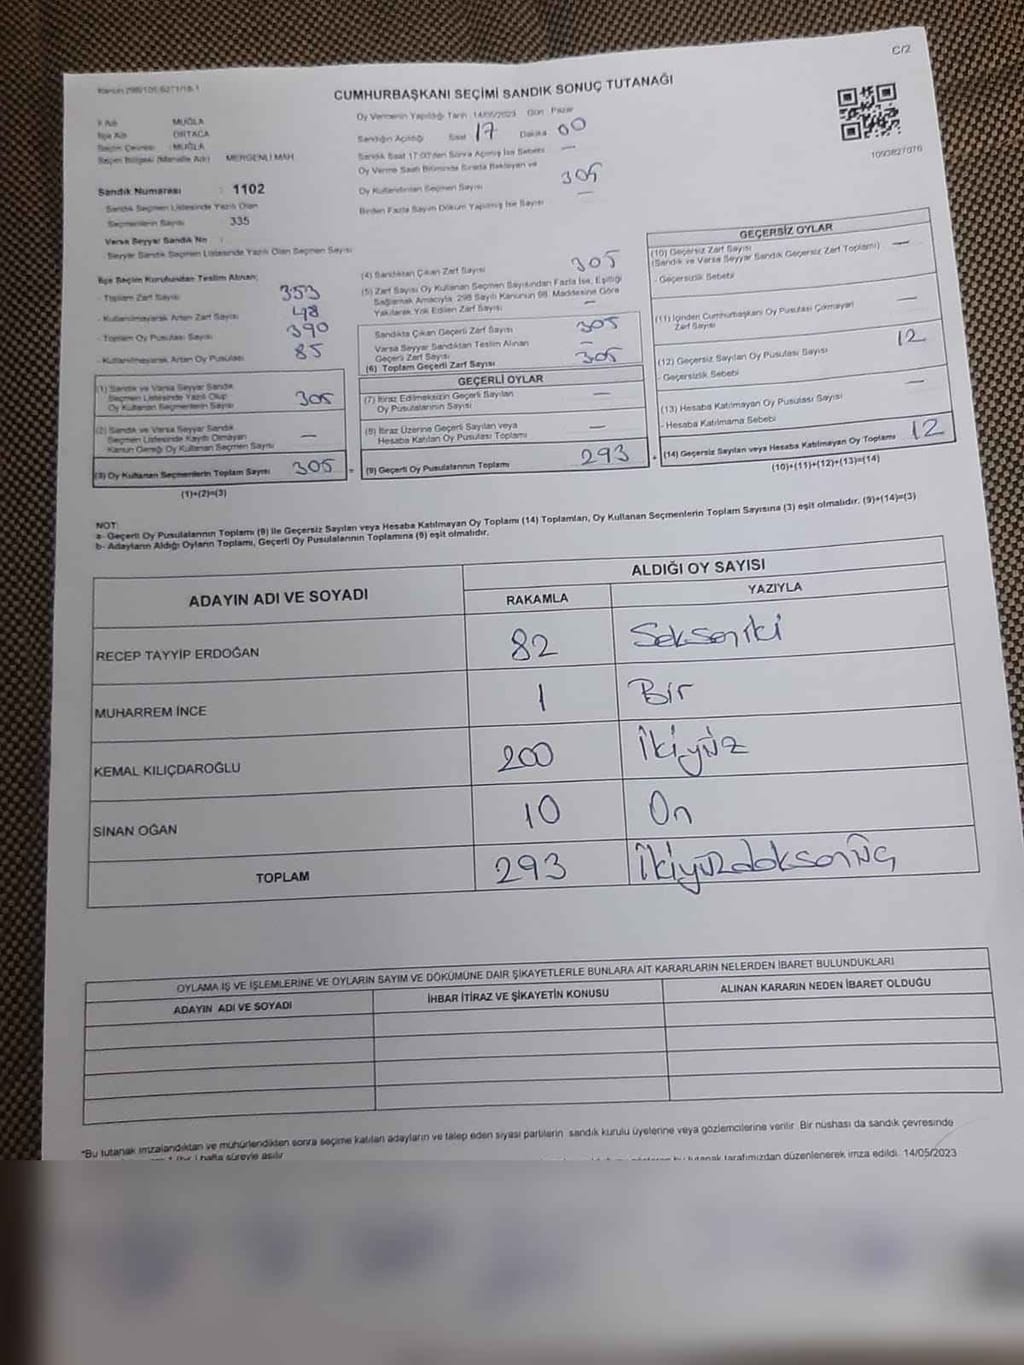 C/2
Kanun 298/105-6271/18-1
CUMHURBAŞKANI SEÇİMİ SANDIK SONUÇ TUTANAĞI
İl Adı : MUĞLA
İlçe Adı : ORTACA
Seçim Çevresi : MUĞLA
Seçim Bölgesi (Mahalle Adı) : MERGENLİ MAH.
Sandık Numarası : 1102
Sandık Seçmen Listesinde Yazılı Olan
Seçmenlerin Sayısı : 335
Varsa Seyyar Sandık No :
Seyyar Sandık Seçmen Listesinde Yazılı Olan Seçmen Sayısı
Oy Vermenin Yapıldığı Tarih 14/05/2023 Gün Pazar
Sandığın Açıldığı Saat 17 Dakika 00
Sandık Saat 17:00'den Sonra Açılmış İse Sebebi —
Oy Verme Saati Bitiminde Sırada Bekleyen ve
Oy Kullandırılan Seçmen Sayısı 305
Birden Fazla Sayım Döküm Yapılmış İse Sayısı —
1093827076
İlçe Seçim Kurulundan Teslim Alınan;
- Toplam Zarf Sayısı 353
- Kullanılmayarak Artan Zarf Sayısı 48
- Toplam Oy Pusulası Sayısı 390
- Kullanılmayarak Artan Oy Pusulası 85
(1) Sandık ve Varsa Seyyar Sandık
Seçmen Listesinde Yazılı Olup
Oy Kullanan Seçmenlerin Sayısı 305
(2) Sandık ve Varsa Seyyar Sandık
Seçmen Listesinde Kayıtlı Olmayan
Kanun Gereği Oy Kullanan Seçmen Sayısı —
(3) Oy Kullanan Seçmenlerin Toplam Sayısı 305 =
(1)+(2)=(3)
(4) Sandıktan Çıkan Zarf Sayısı 305
(5) Zarf Sayısı Oy Kullanan Seçmen Sayısından Fazla İse, Eşitliği
Sağlamak Amacıyla, 298 Sayılı Kanunun 98. Maddesine Göre
Yakılarak Yok Edilen Zarf Sayısı —
Sandıkta Çıkan Geçerli Zarf Sayısı 305
Varsa Seyyar Sandıktan Teslim Alınan
Geçerli Zarf Sayısı —
(6) Toplam Geçerli Zarf Sayısı 305
GEÇERLİ OYLAR
(7) İtiraz Edilmeksizin Geçerli Sayılan
Oy Pusulalarının Sayısı —
(8) İtiraz Üzerine Geçerli Sayılan veya
Hesaba Katılan Oy Pusulası Toplamı —
(9) Geçerli Oy Pusulalarının Toplamı 293 +
GEÇERSİZ OYLAR
(10) Geçersiz Zarf Sayısı
(Sandık ve Varsa Seyyar Sandık Geçersiz Zarf Toplamı) —
- Geçersizlik Sebebi
(11) İçinden Cumhurbaşkanı Oy Pusulası Çıkmayan
Zarf Sayısı —
(12) Geçersiz Sayılan Oy Pusulası Sayısı 12
- Geçersizlik Sebebi
(13) Hesaba Katılmayan Oy Pusulası Sayısı —
- Hesaba Katılmama Sebebi
(14) Geçersiz Sayılan veya Hesaba Katılmayan Oy Toplamı 12
(10)+(11)+(12)+(13)=(14)
NOT:
a- Geçerli Oy Pusulalarının Toplamı (9) ile Geçersiz Sayılan veya Hesaba Katılmayan Oy Toplamı (14) Toplamları, Oy Kullanan Seçmenlerin Toplam Sayısına (3) eşit olmalıdır. (9)+(14)=(3)
b- Adayların Aldığı Oyların Toplamı, Geçerli Oy Pusulalarının Toplamına (9) eşit olmalıdır.
ADAYIN ADI VE SOYADI
ALDIĞI OY SAYISI
RAKAMLA YAZIYLA
RECEP TAYYİP ERDOĞAN 82 Seksen iki
MUHARREM İNCE 1 Bir
KEMAL KILIÇDAROĞLU 200 İkiyüz
SİNAN OĞAN 10 On
TOPLAM 293 İkiyüzdoksanüç
OYLAMA İŞ VE İŞLEMLERİNE VE OYLARIN SAYIM VE DÖKÜMÜNE DAİR ŞİKAYETLERLE BUNLARA AİT KARARLARIN NELERDEN İBARET BULUNDUKLARI
ADAYIN ADI VE SOYADI İHBAR İTİRAZ VE ŞİKAYETİN KONUSU ALINAN KARARIN NEDEN İBARET OLDUĞU
*Bu tutanak imzalandıktan ve mühürlendikten sonra seçime katılan adayların ve talep eden siyasi partilerin sandık kurulu üyelerine veya gözlemcilerine verilir. Bir nüshası da sandık çevresinde
hafta süreyle asılır. bu tutanak tarafımızdan düzenlenerek imza edildi. 14/05/2023